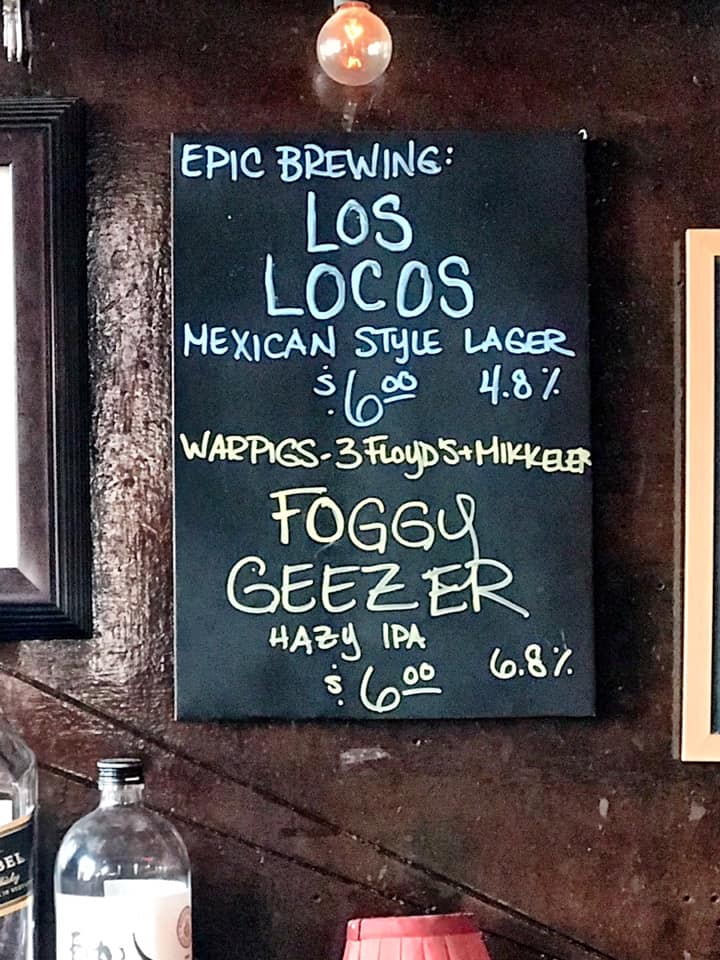 EPIC BREWING:
LOS
LOCOS
MEXICAN STYLE LAGER
$6.00 4.8%
WARPIGS-3 FLOYD'S+MIKKELER
FOGGY
GEEZER
HAZY IPA
$6.00 6.8%
BEL